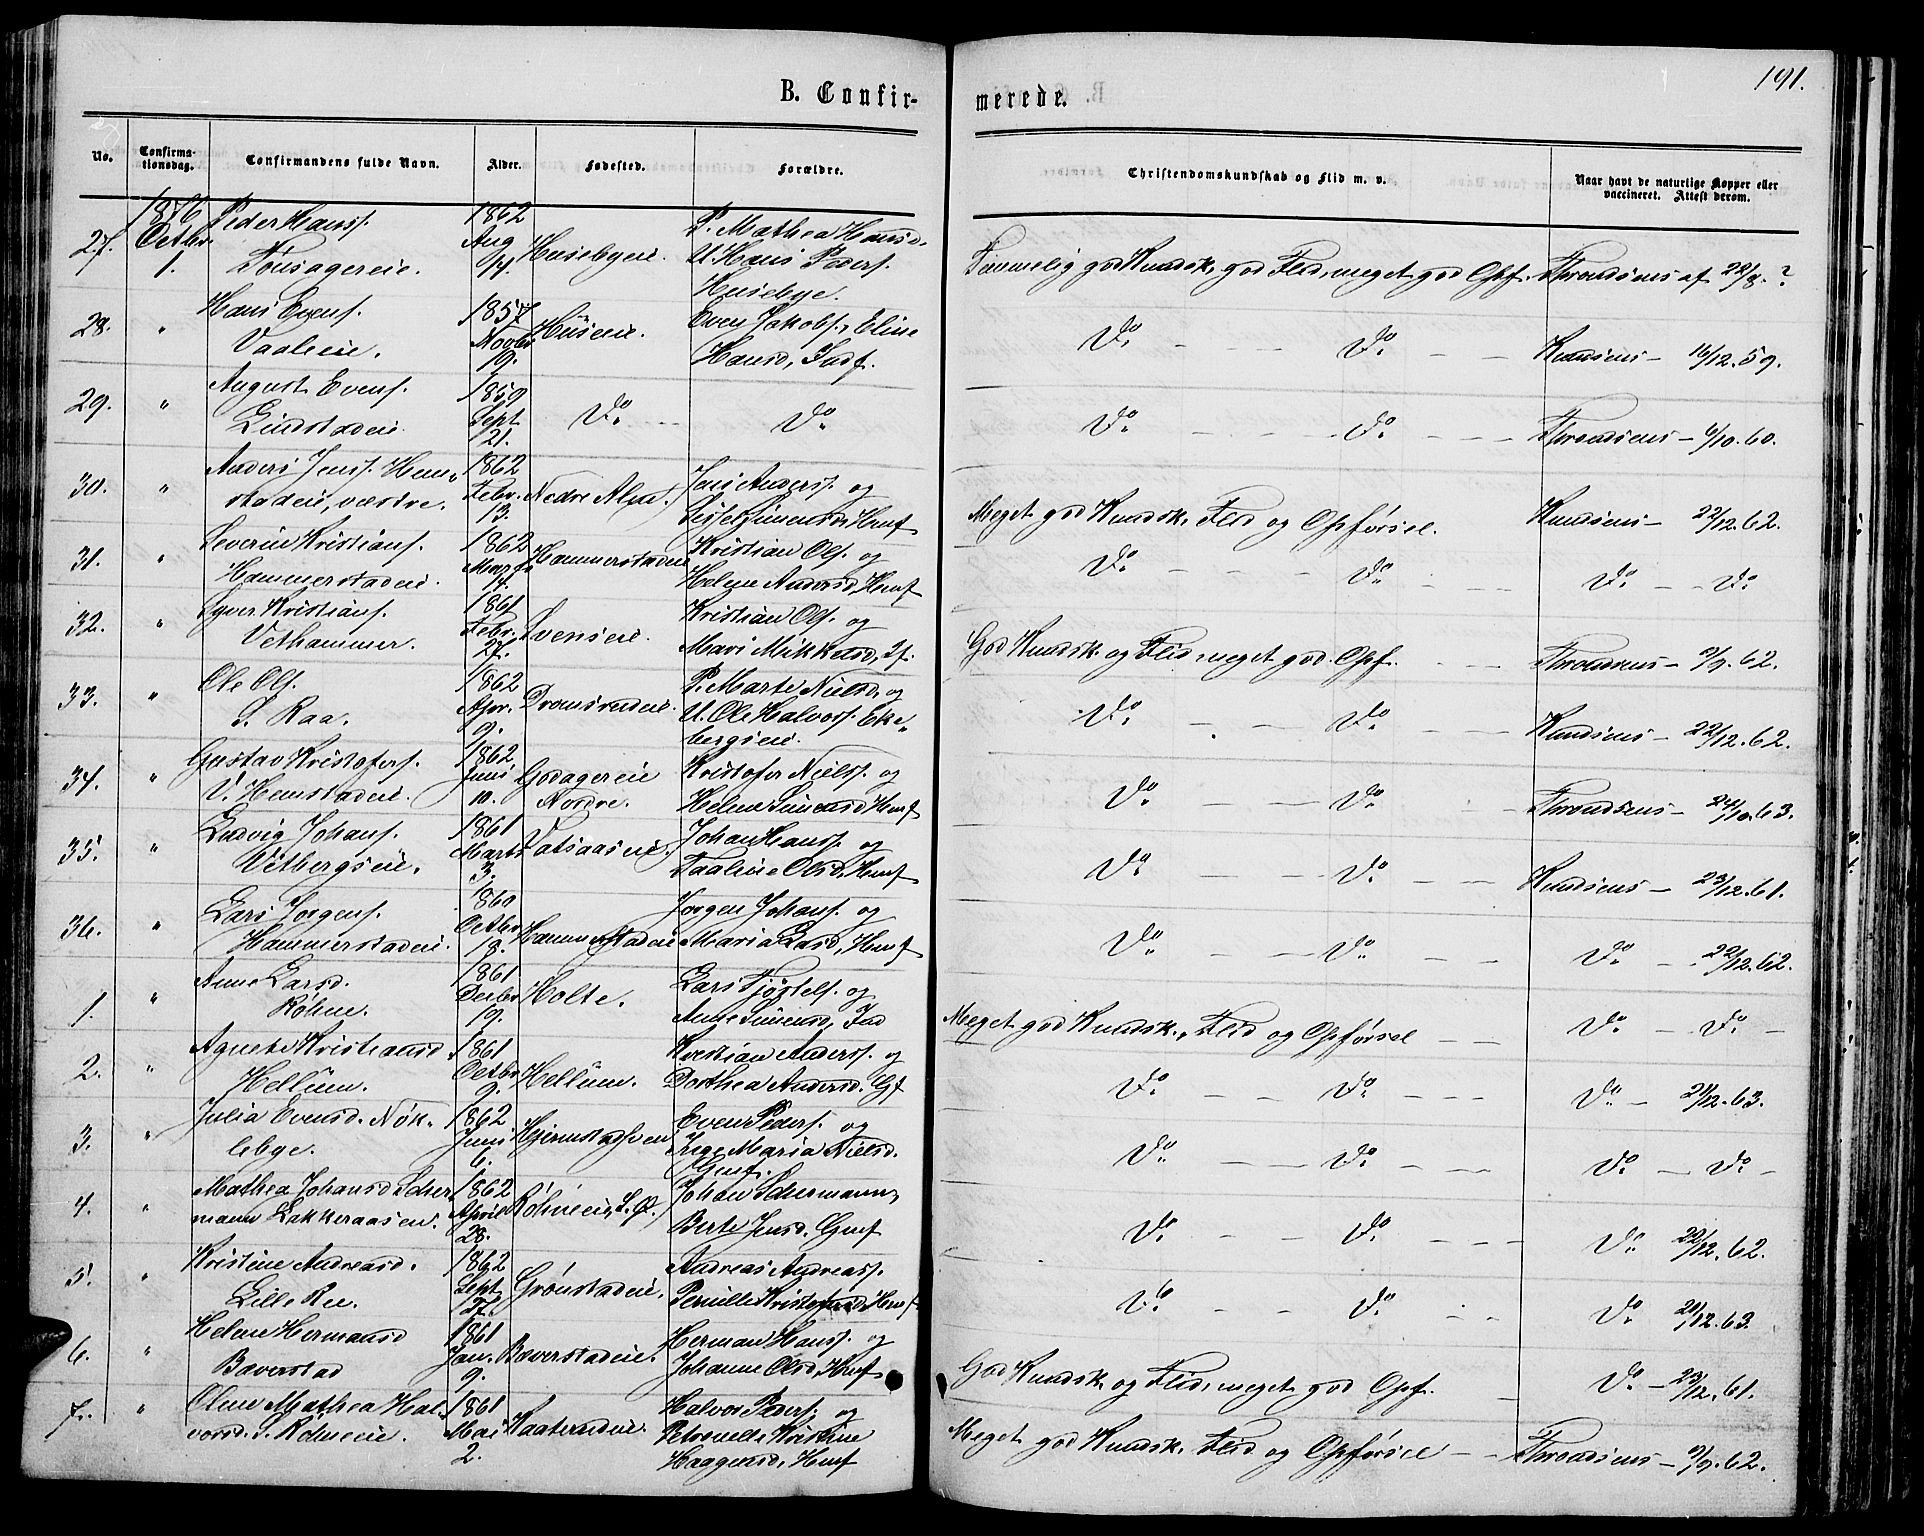 191.
B. Confirmerede.
No. | Confirmationsdag. | Confirmandens fulde Navn. | Alder. | Fødested. | Forældre. | Christendomskundskab og Flid m. v. | Naar havt de naturlige Kopper eller vaccineret. Attest derom.
27. | 1876 Octbr. 1. | Peder Hanss. Lönsagereie. | 1862 Aug 14. | Husebyeie. | P. Mathea Hansd. U. Hans Peders. Husebye. | Temmelig god Kundsk, god Flid, meget god Opf. | Throndsens af 22/8. ?
28. | " | Hans Evens. Vaaleeie. | 1857 Novbr 19. | Huseeie. | Even Jakobs., Eline Hansd, Indf. | Do. — Do. | Knudsens — 16/12.59.
29. | " | August Evens. Lindstadeie | 1859 Sept 21. | Do. | Do. | Do. — Do. | Throndsens — 6/10.60.
30. | " | Anders Jenss. Hemstadeie, vestre. | 1862 Febr. 13. | Nedre Alm. | Jens Anderss. og Sissel Simensd, Hmf | Meget god Kundsk, Flid og Opførsel. | Knudsens — 22/12.62.
31. | " | Severin Kristians. Hammerstadeie. | 1862 Marts | Hammerstadeie | Kristian Ols. og Helene Andersd, Hmf | Do. — Do. | Do. — Do.
32. | " | Syver Kristians. Vethammer. | 1861 Febr. 27. | Svenseie. | Kristian Ols. og Mari Mikkelsd, If. | God Kundsk og Flid, meget god Opf. | Throndsens — 9/9.62.
33. | " | Ole Ols. S. Raa. | 1862 Apr. 9. | Dromsrudeie. | P. Marte Nielsd, og U. Ole Halvors. Ekebergseie. | Do. — Do. | Knudsens — 22/12.62.
34. | " | Gustav Kristofers. V. Hemstadeie. | 1862 Juni 10. | Godagereie Nordre. | Kristofer Nielss. og Helene Simensd Hmf | Do. — Do. | Throndsens — 24/10.63.
35. | " | Ludvig Johans. Vetbergseie. | 1861 Marts 3. | Vatsaaseie. | Johan Hanss. og Taaline Olsd, Hmf | Do. — Do. | Knudsens — 23/12.61.
36. | " | Lars Jörgens. Hammerstadeie. | 1860 Octbr 18. | Hammerstadeie | Jörgen Johans. og Maria Larsd, Hmf | Do. — Do. | Do. — 22/12.62.
1. | " | Anne Larsd. Röhne. | 1861 Decbr 19. | Holte. | Lars Fjöstels. og Anne Simensd, Ind | Meget god Kundsk., Flid og Opførsel | Do. — Do.
2. | " | Agnete Kristiansd. Hellüm. | 1861 Octbr 9. | Hellüm. | Kristian Anderss. og Dorthea Andersd. Gf | Do. — Do. | Do. — 21/12.63.
3. | " | Julia Evensd. Nøklebye. | 1862 Juni 6. | | Even Peders. og Inge Maria Nielsd. Gmf. | Do. — Do. | Do. — Do.
4. | " | Mathea Johansd Schermann Lakkeraasen. | 1862 April 28. | Röhneeie, S. Ø. | Johan Schermann, Berte Jensd. Gmf | Do. — Do. | Do. 22/12.62.
5. | " | Kristine Andreasd. Lille Ree. | 1862 Sept 27. | Grönstadeie. | Andreas Andreass. Pernille Kristofersd Hmf | Do. — Do. | Do. 21/12.63.
6. | " | Helene Hermansd Bæverstad | 1861 Jan. 9. | Bæverstadeie. | Herman Hanss. og Johanne Olsd, Hmf | God Kundsk og Flid, meget god Opf. | Do. — 23/12.61.
7. | " | Oline Mathea Halvorsd. S. Röhneeie. | 1861 Mai 2. | Kaaterudeie. | Halvor Peders. og Petronelle Kristine Haagensd, Hmf | Meget god Kundsk. Flid og Opførsel — | Throndsens — 9/9.62.